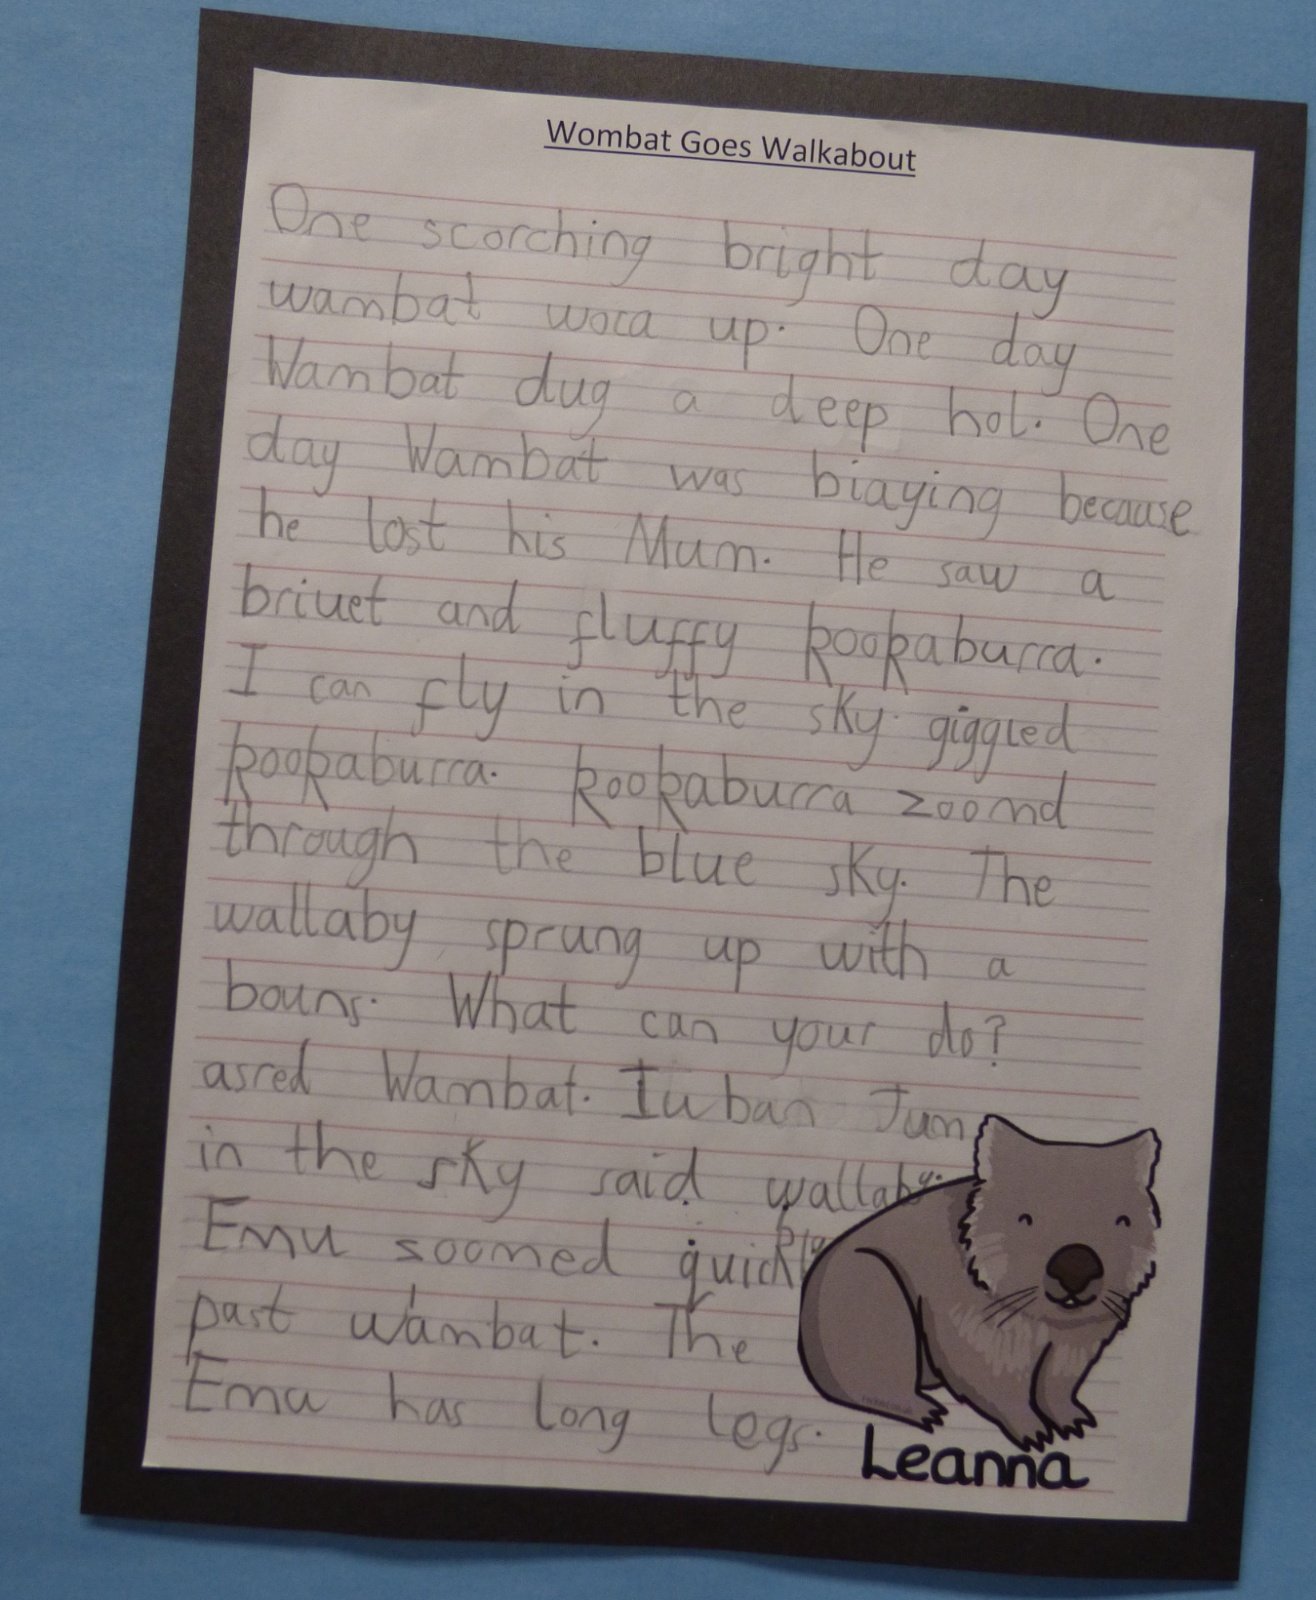 Wombat Goes Walkabout
One scorching bright day
wambat woca up. One day
Wambat dug a deep hol. One
day Wambat was biaying because
he lost his Mum. He saw a
briuet and fluffy kookaburra.
I can fly in the sky giggled
kookaburra. kookaburra zoomd
through the blue sky. The
wallaby sprung up with a
bouns. What can your do?
asred Wambat. Iu ban Jum
in the sky said wallaby.
Emu soomed quickly
past wambat. The
Emu has long legs.
Leanna